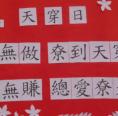 天穿日
無做 尞到天
無賺 總愛尞